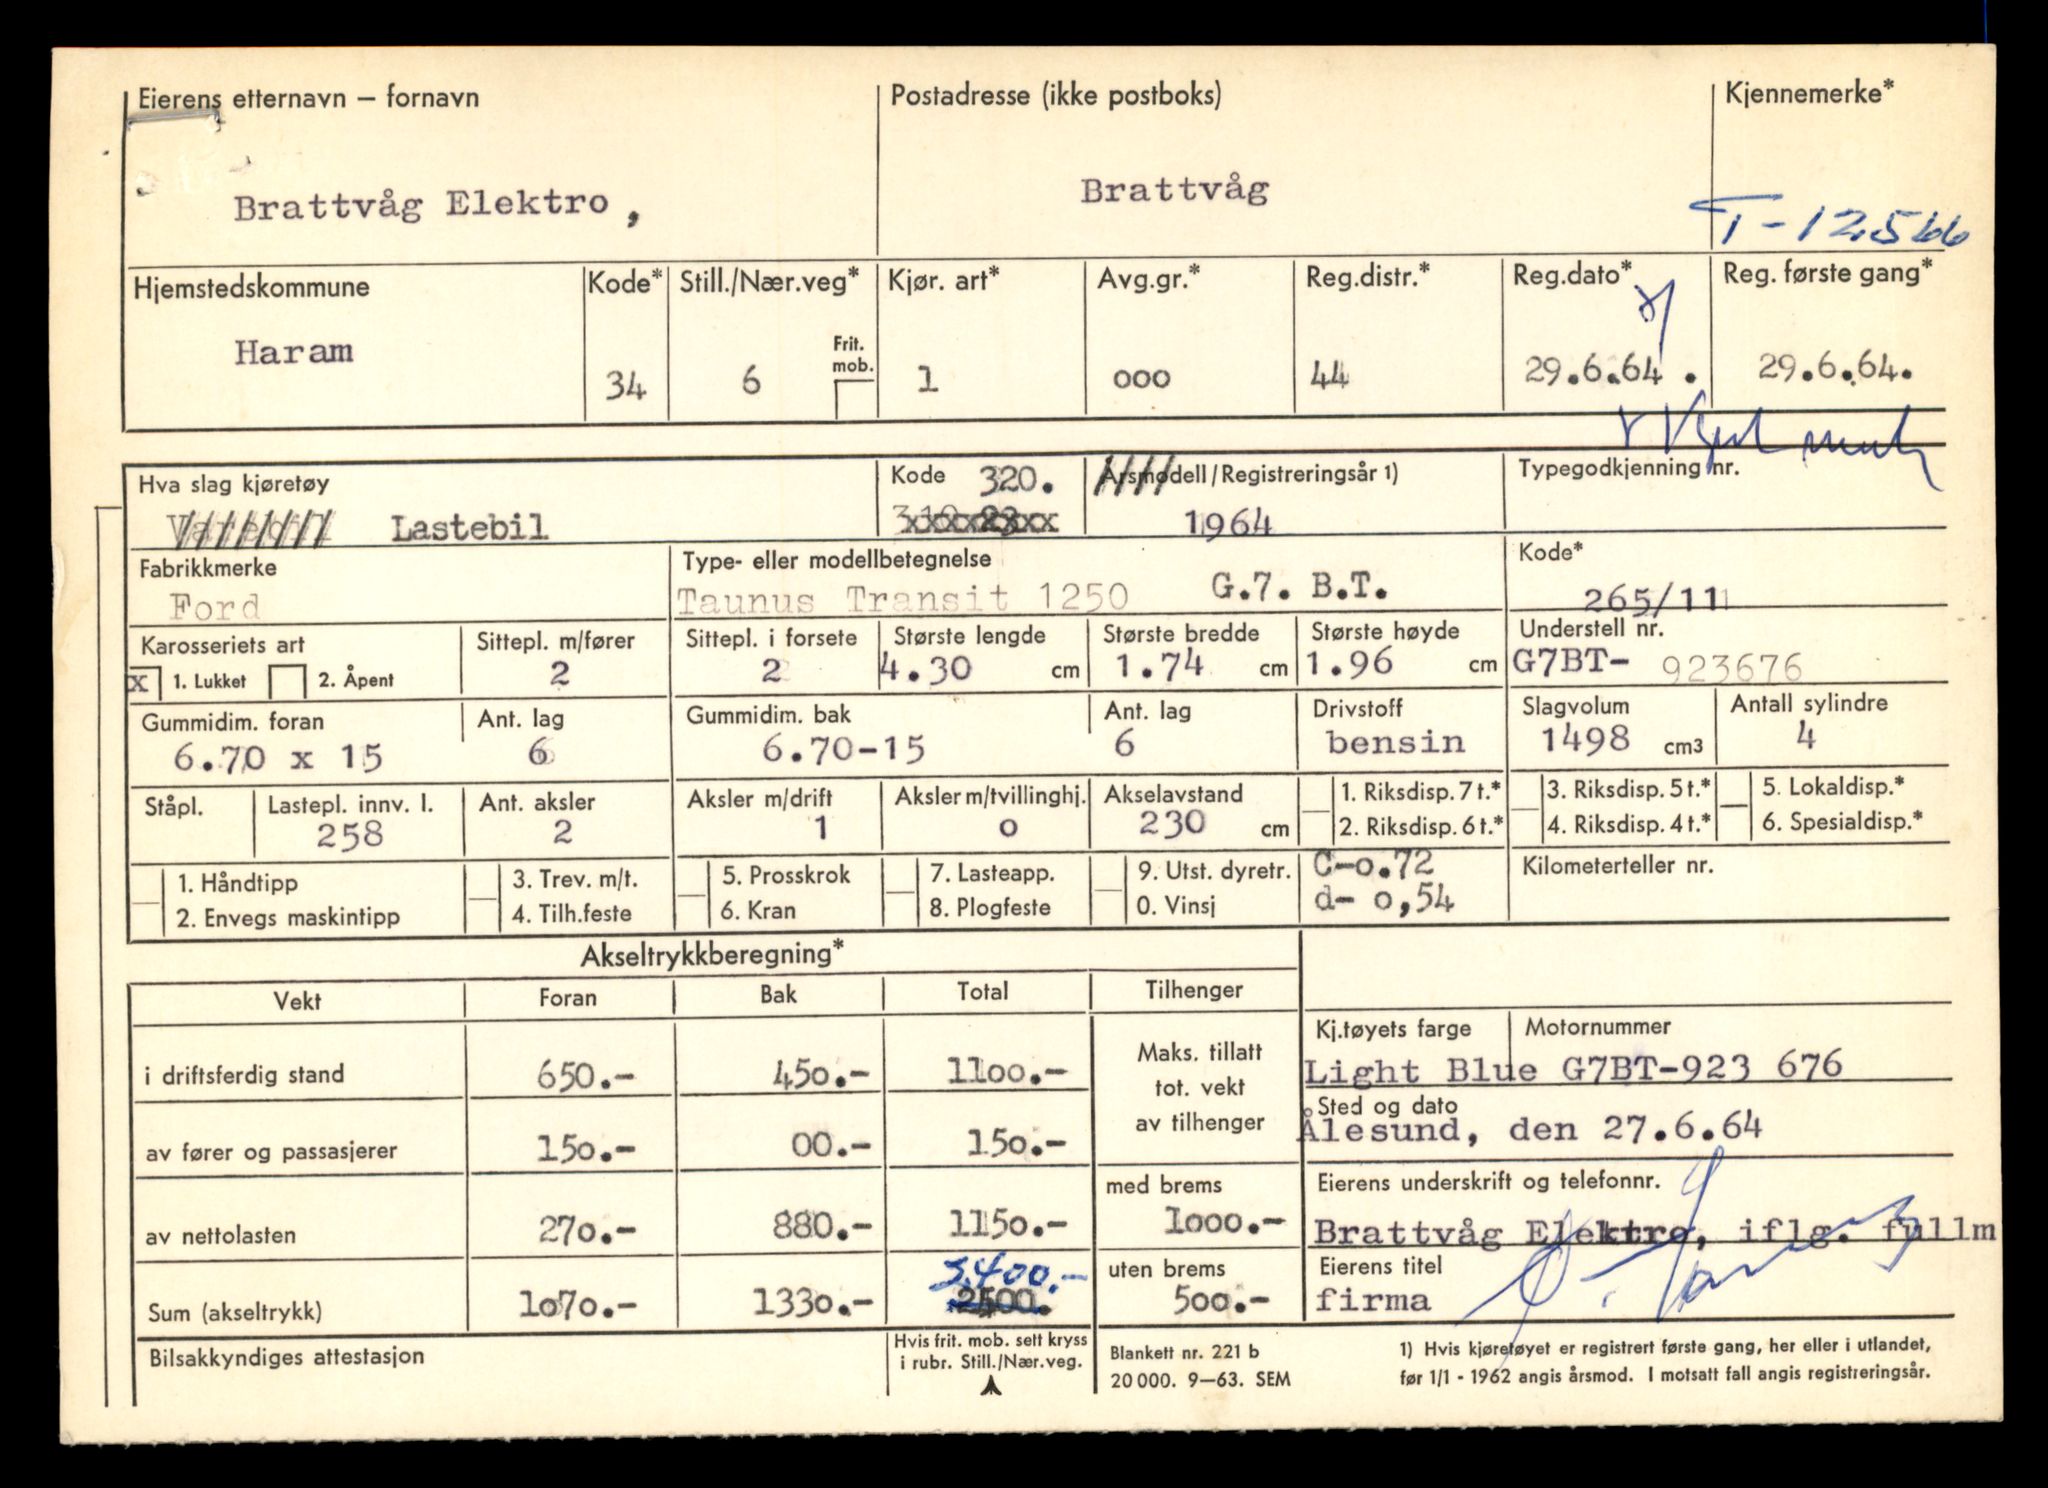 Eierens etternavn – fornavn Postadresse (ikke postboks) Kjennemerke*
Brattvåg Elektro, Brattvåg T-12566
Hjemstedskommune Kode* Still./Nær.veg* Kjør. art* Avg.gr.* Reg.distr.* Reg.dato* Reg. første gang*
Haram 34 6 Frit. mob. 1 000 44 29.6.64. 29.6.64.
Hva slag kjøretøy Kode 320. Årsmodell/Registreringsår 1) Typegodkjenning nr.
Varebil Lastebil 1964
Fabrikkmerke Type- eller modellbetegnelse Kode*
Ford Taunus Transit 1250 G.7. B.T. 265/11
Karosseriets art Sittepl. m/fører Sittepl. i forsete Største lengde Største bredde Største høyde Understell nr.
x 1. Lukket 2. Åpent 2 2 4.30 cm 1.74 cm 1.96 cm G7BT- 923676
Gummidim. foran Ant. lag Gummidim. bak Ant. lag Drivstoff Slagvolum Antall sylindre
6.70 x 15 6 6.70-15 6 bensin 1498 cm3 4
Ståpl. Lastepl. innv. l. Ant. aksler Aksler m/drift Aksler m/tvillinghj. Akselavstand 1. Riksdisp. 7 t.* 3. Riksdisp. 5 t.* 5. Lokaldisp.*
258 2 1 0 230 cm 2. Riksdisp. 6 t.* 4. Riksdisp. 4 t.* 6. Spesialdisp.*
1. Håndtipp 3. Trev. m/t. 5. Prosskrok 7. Lasteapp. 9. Utst. dyretr. C-0.72 Kilometerteller nr.
2. Envegs maskintipp 4. Tilh.feste 6. Kran 8. Plogfeste 0. Vinsj d- 0,54
Akseltrykkberegning*
Vekt Foran Bak Total Tilhenger
Kj.tøyets farge Motornummer
i driftsferdig stand 650.- 450.- 1100.- Maks. tillatt tot. vekt av tilhenger Light Blue G7BT-923 676
Sted og dato
av fører og passasjerer 150.- 00.- 150.- Ålesund, den 27.6.64
med brems Eierens underskrift og telefonnr.
av nettolasten 270.- 880.- 1150.- 1000.- Brattvåg Elektro, iflg. fullm
3.400.- uten brems Eierens titel
Sum (akseltrykk) 1070.- 1330.- 500.- firma
Bilsakkyndiges attestasjon Hvis frit. mob. sett kryss Blankett nr. 221 b 1) Hvis kjøretøyet er registrert første gang, her eller i utlandet,
i rubr. Still./Nær.veg. 20 000. 9–63. SEM før 1/1 - 1962 angis årsmod. I motsatt fall angis registreringsår.